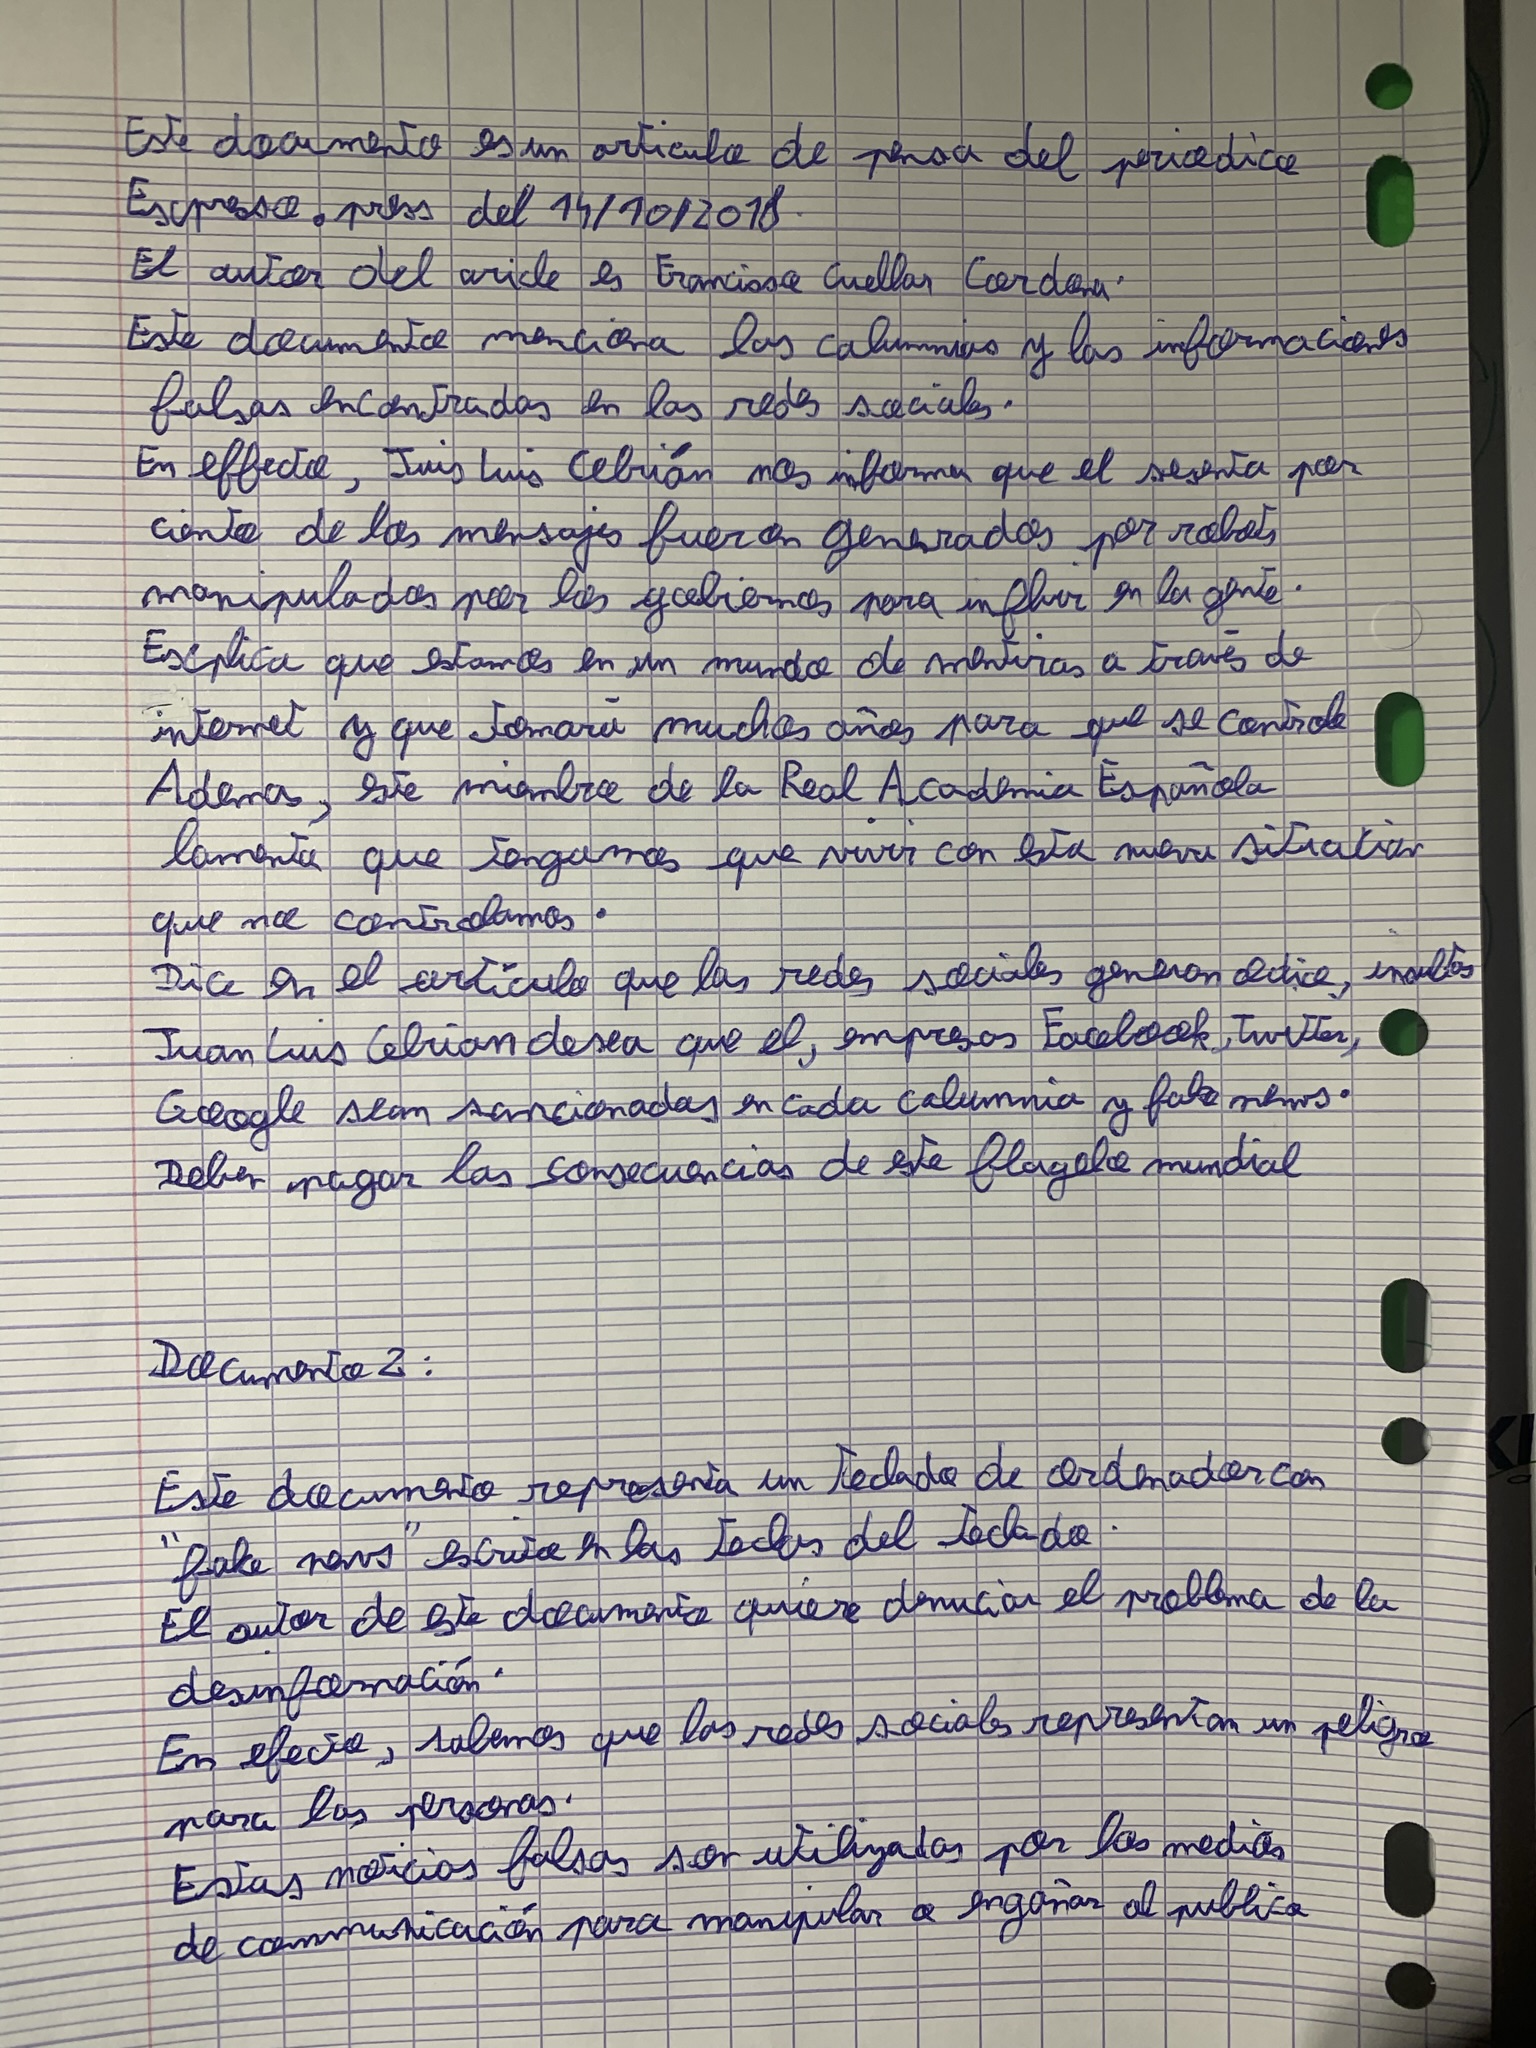 Este documento es un articulo de pensa del periodico
Escpresso.press del 14/10/2018.
El autor del aricle es Francisso Cuellar Cordona.
Este documento menciona las calumnias y las informaciones
falsas encontradas en las redes sociales.
En effecto, Juis Luis Cebrián nos informa que el sesenta por
ciento de los mensajes fueron generados por robots
manipulados por los gobiernos para influir en la gente.
Escplica que estamos en un mundo de mentiras a través de
internet y que tomará muchos años para que se controle
Ademas, este miembro de la Real Academia Española
lamenta que tengamos que vivir con esta nueva situation
que no controlamos.
Dice en el artículo que las redes sociales generan odio, insultos
Juan Luis Cebrian desea que el, empresas Facebook, Twitter,
Google sean sancionadas en cada calumnia y fake news.
Deben pagar las consecuencias de este flagelo mundial
Documento 2:
Este documento representa un teclado de ordenador con
"fake news" escrito en las teclas del teclado.
El autor de este documento quiere denuciar el problema de la
desinformación.
En efecto, sabemos que las redes sociales representan un peligro
para las personas.
Estas noticias falsas son utilizadas por los medios
de communicación para manipular o engañar al publico